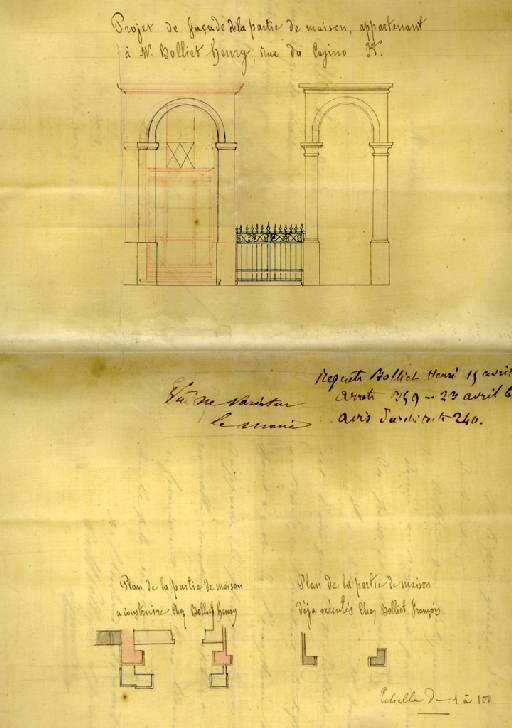 Projet de façade de la partie de maison, appartenant
à Mr Bolliet Henry, rue du Casino
Requête Bolliet Henri 15 avril
Arrêté 359 - 23 avril
avis 240.
Vu ne varietur
le maire
Plan de la partie de maison
a construire chez Bolliet Henry
Plan de la partie de maison
déja exécutés chez Bolliet François
Echelle De 1 à 100